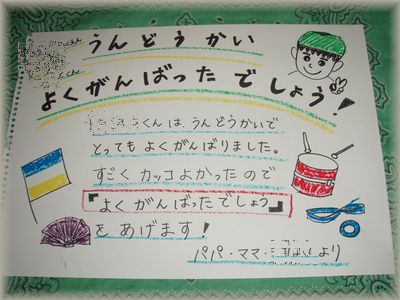 うんどうかい
よくがんばったでしょう!
くんは、うんどうかいで
とってもよくがんばりました。
すごくカッコよかったので
『よくがんばったでしょう』
をあげます!
パパ・ママ・より